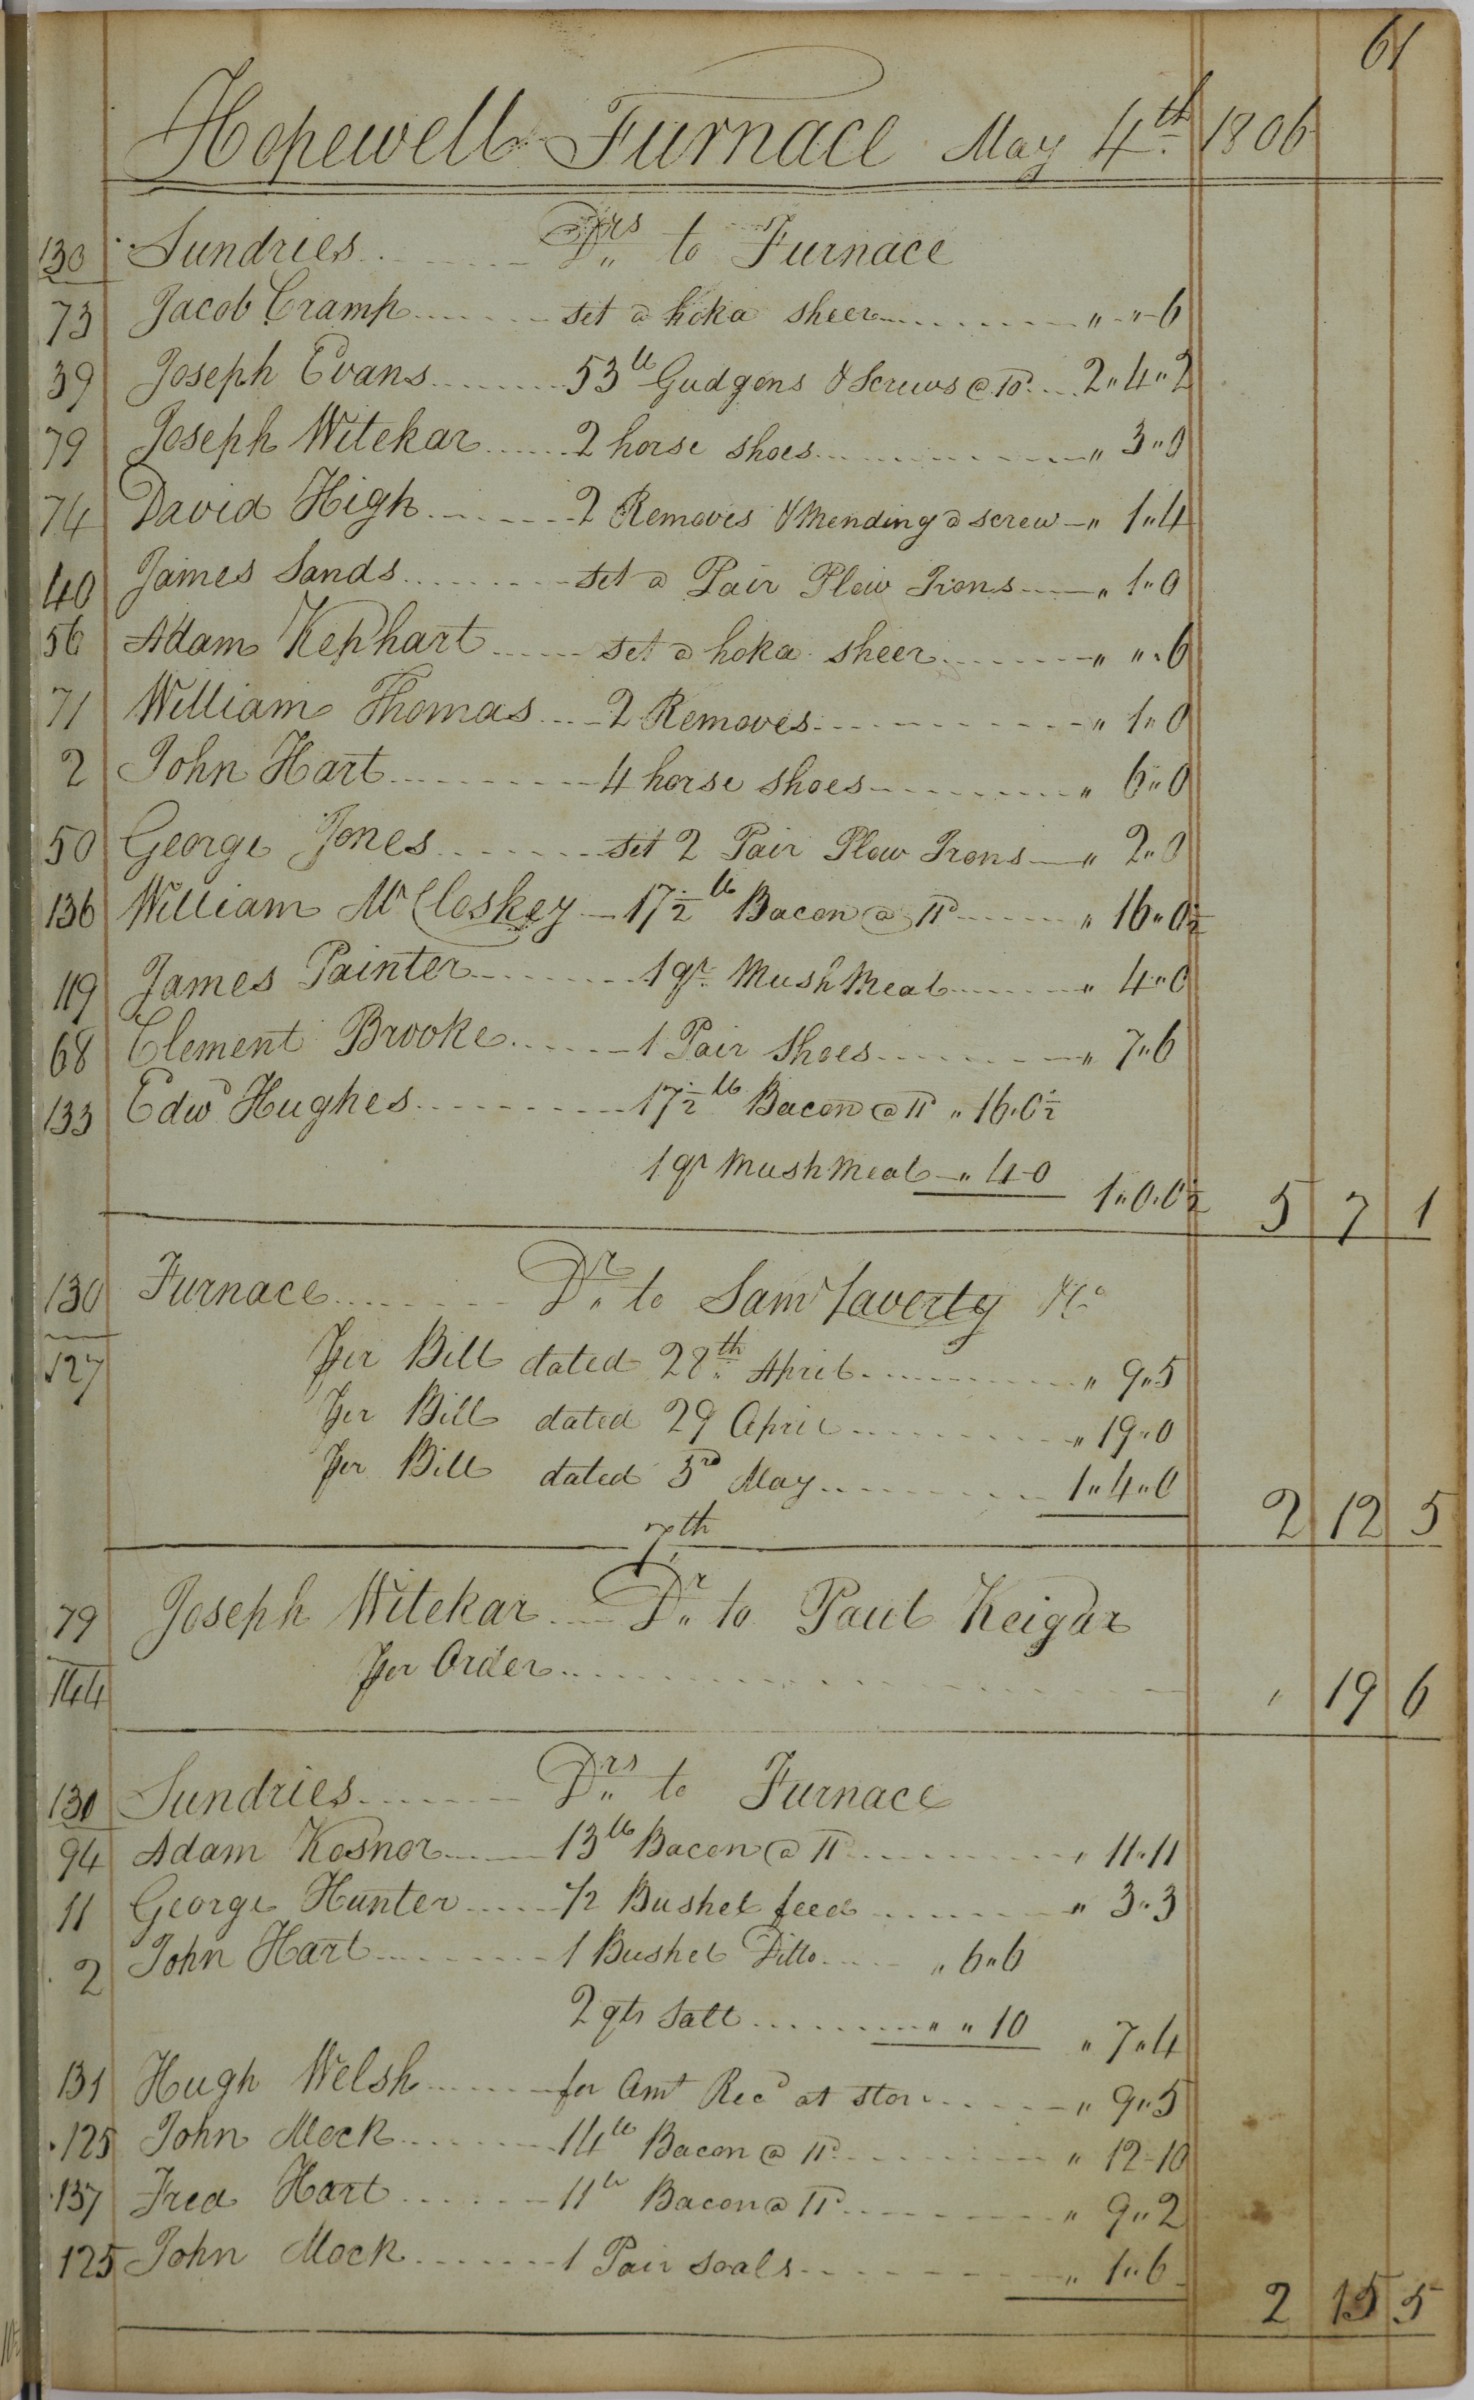 61
Hopewell Furnace May 4th 1806
130 Sundries Drs to Furnace
73 Jacob Cramp set a hoka sheer " " 6
39 Joseph Evans 53 lb Gudgens & Screws @ 10d 2 " 4 " 2
79 Joseph Witekar 2 horse shoes " 3 " 0
74 David High 2 Removes & mending a screw " 1 " 4
40 James Sands set a Pair Plow Irons " 1 " 0
56 Adam Kephart set a hoka sheer " " 6
71 William Thomas 2 Removes " 1 " 0
2 John Hart 4 horse shoes " 6 " 0
50 George Jones set 2 Pair Plow Irons " 2 " 0
136 William McCloskey 17 1/2 lb Bacon @ 11d " 16 " 0 1/2
119 James Painter 1 qr Mush Meal " 4 " 0
68 Clement Brooke 1 Pair Shoes " 7 " 6
133 Edwd Hughes 17 1/2 lb Bacon @ 11d " 16 " 0 1/2
1 qr Mush Meal " 4 0 1 " 0 " 0 1/2 5 7 1
130 Furnace Dr to Saml Laverty &c
127 per Bill dated 28th April " 9 " 5
per Bill dated 29 April " 19 " 0
per Bill dated 3rd May 1 " 4 " 0 2 12 5
7th
79 Joseph Witekar Dr to Paul Keigar
144 per Order " 19 6
130 Sundries Drs to Furnace
94 Adam Kosnor 13 lb Bacon @ 11d " 11 " 11
11 George Hunter 1/2 Bushel feed " 3 " 3
2 John Hart 1 Bushel Ditto " 6 " 6
2 qts Salt " " 10 " 7 " 4
131 Hugh Welsh for Amt Recd at store " 9 " 5
125 John Mock 14 lb Bacon @ 11d " 12 - 10
137 Fred Hart 11 lb Bacon @ 11d " 9 " 2
125 John Mock 1 Pair soals " 1 " 6 2 15 5